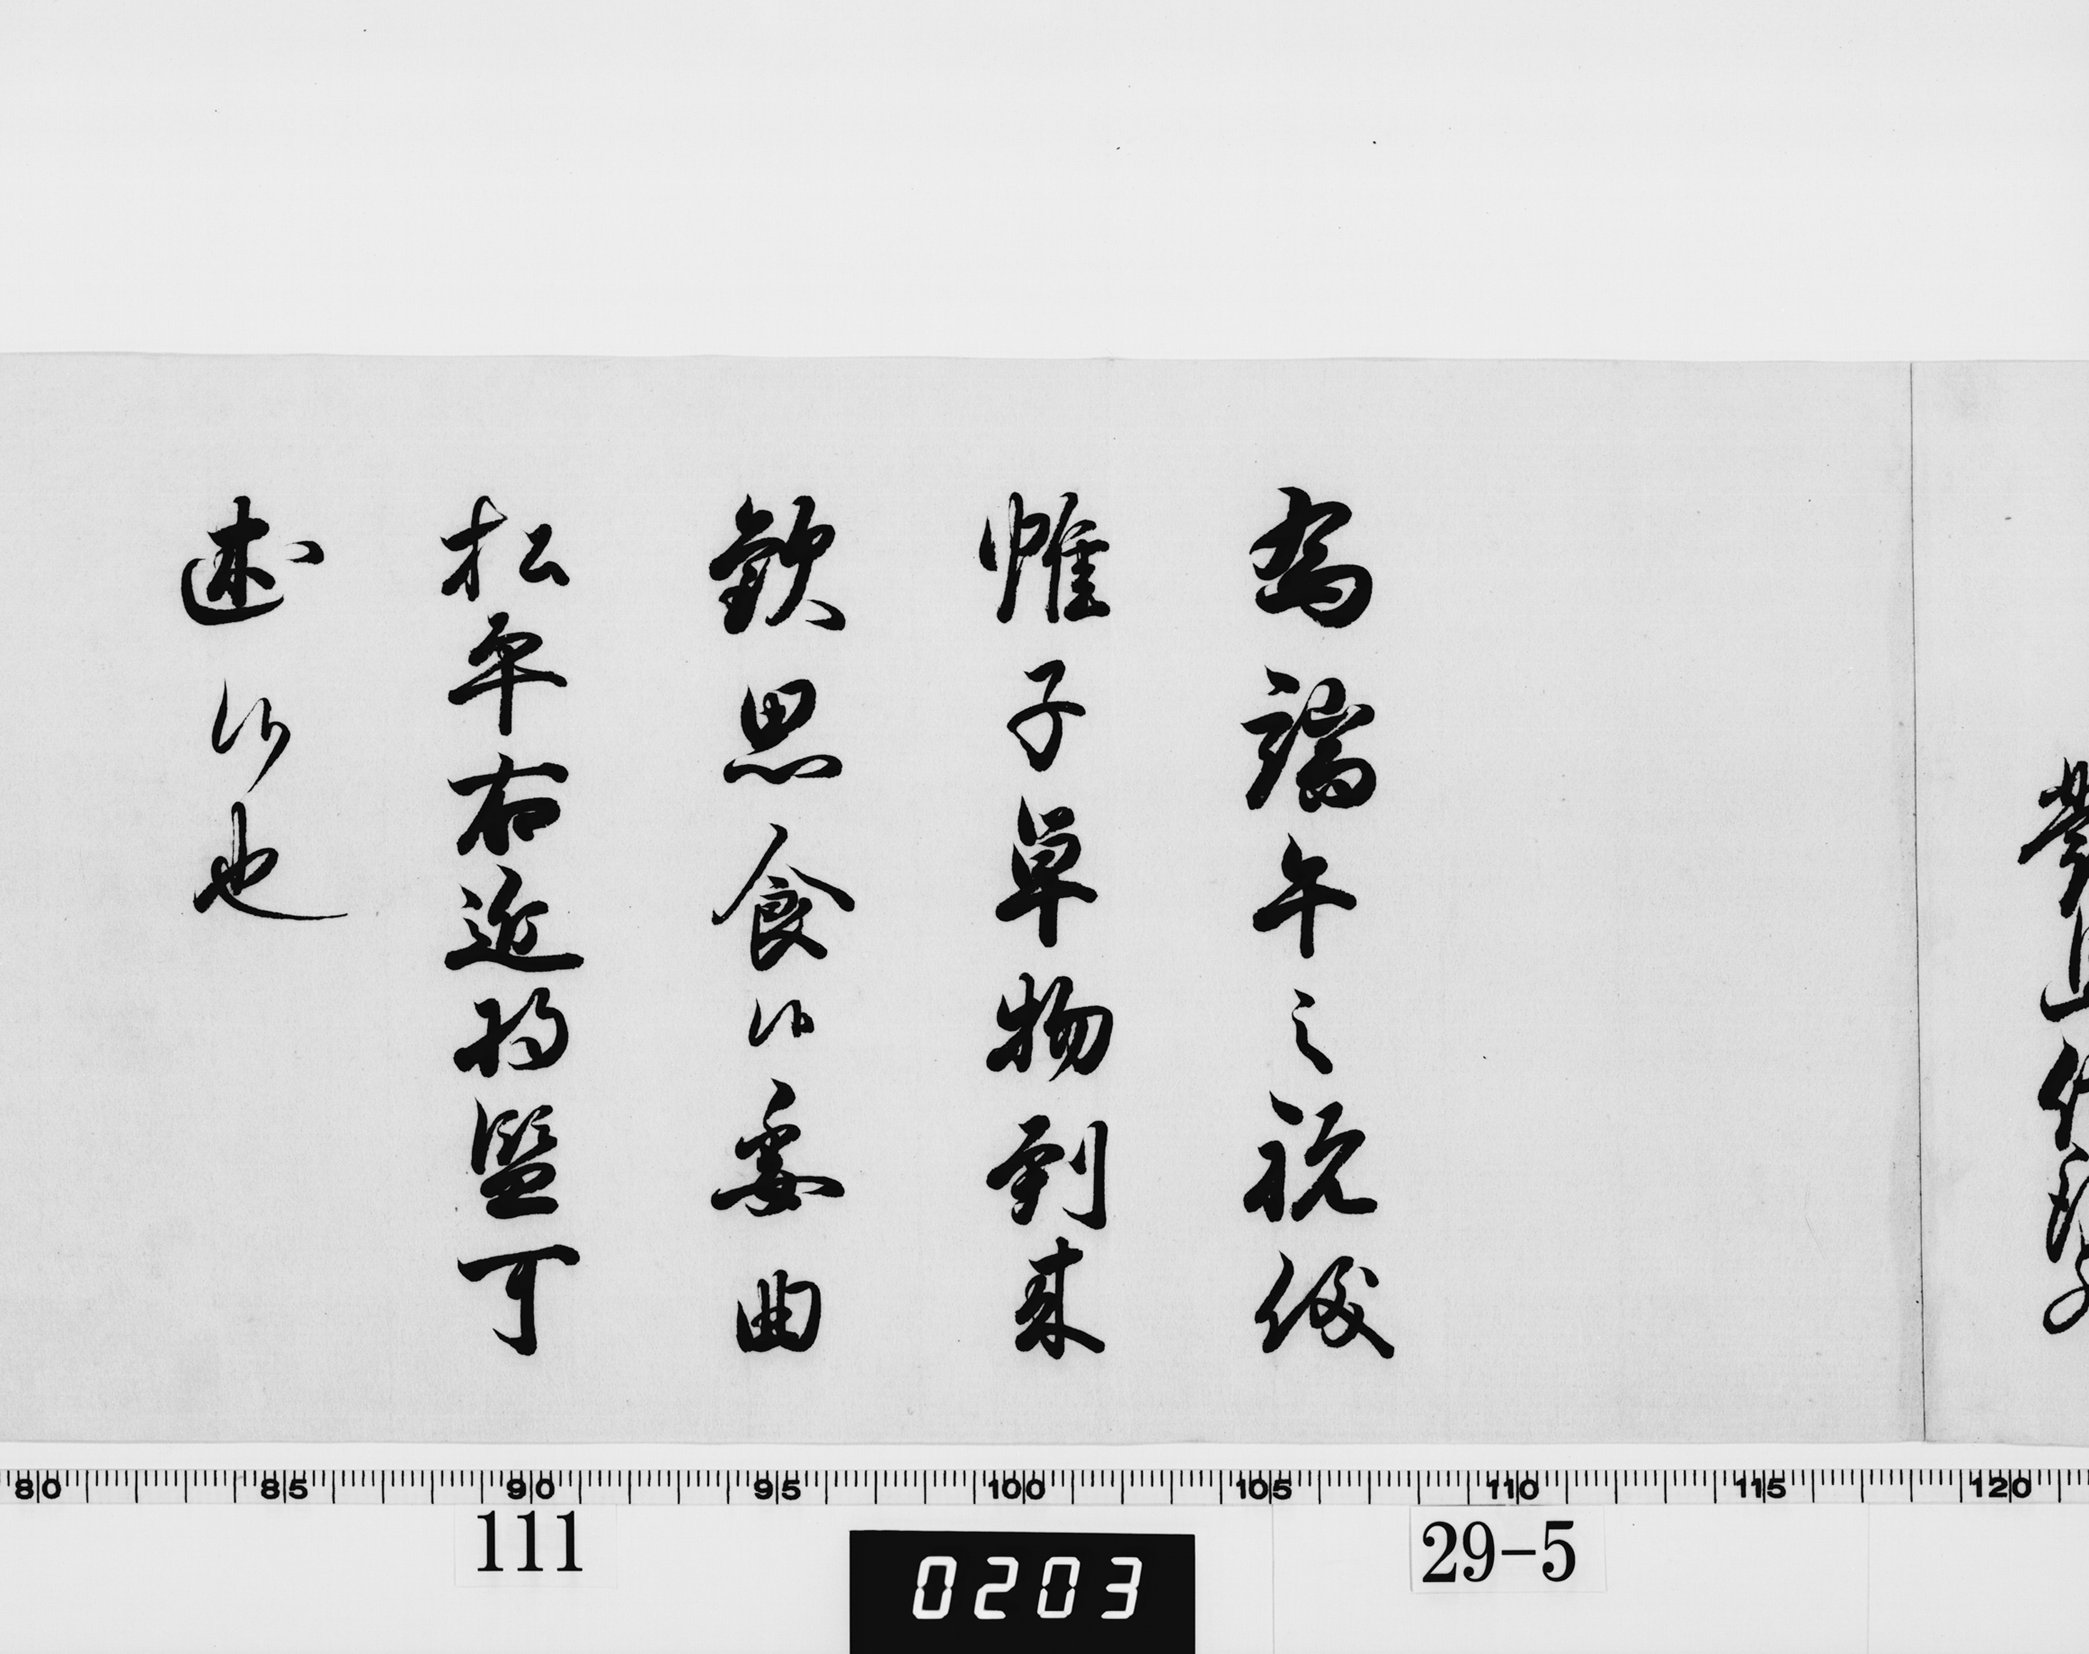 豊山代々
為端午之祝儀
帷子単物到来
歓思食候委曲
松平右近将監可
述候也
80 85 90 95 100 105 110 115 120
111
0203
29-5